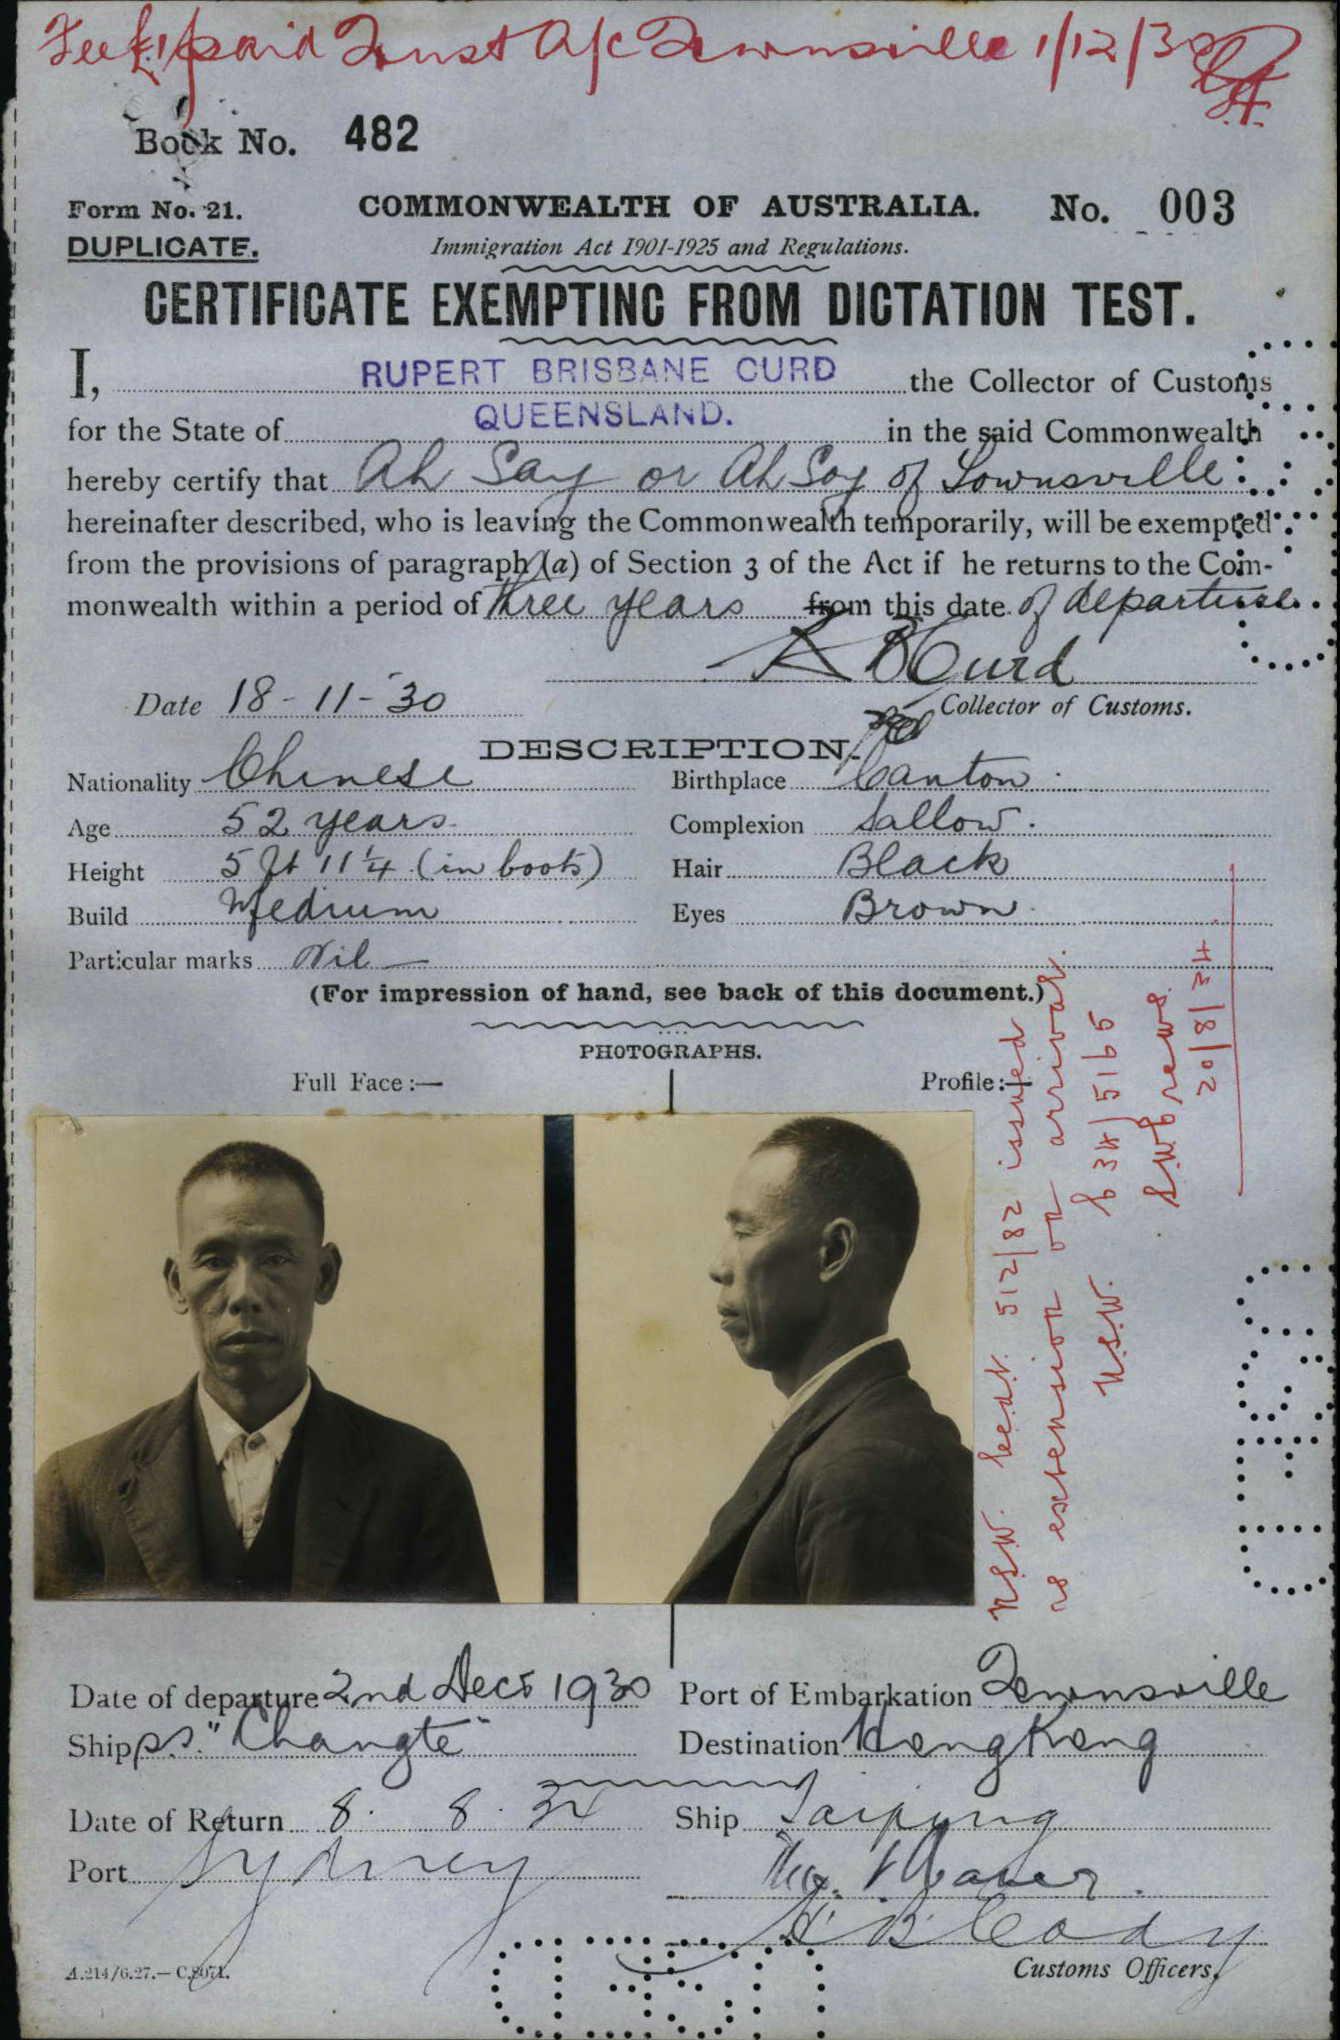 Fee £1 paid Trust A/c Townsville 1/12/30
Book No. 482
Form No. 21. COMMONWEALTH OF AUSTRALIA. No. 003
DUPLICATE. Immigration Act 1901-1925 and Regulations.
CERTIFICATE EXEMPTING FROM DICTATION TEST.
I, RUPERT BRISBANE CURD the Collector of Customs
for the State of QUEENSLAND. in the said Commonwealth
hereby certify that Ah Say or Ah Soy of Townsville
hereinafter described, who is leaving the Commonwealth temporarily, will be exempted
from the provisions of paragraph (a) of Section 3 of the Act if he returns to the Com-
monwealth within a period of three years from this date of departure.
R B Curd
Date 18-11-30 Collector of Customs.
DESCRIPTION.
Nationality Chinese Birthplace Canton
Age 52 years Complexion Sallow.
Height 5 ft 11 1/4 (in boots) Hair Black
Build Medium Eyes Brown
Particular marks Nil
(For impression of hand, see back of this document.)
PHOTOGRAPHS.
Full Face:— Profile:—
N.S.W. 512/82 issued
as extension on arrival.
N.S.W. 34/5165
20/8/34
Date of departure 2nd Decr 1930 Port of Embarkation Townsville
Ship s.s. "Changte" Destination Hong Kong
Date of Return 8. 8. 34 Ship Taiping
Port Sydney
H B Cody
A.214/6.27.—C.8071. Customs Officers.